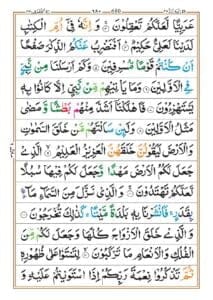 عَرَبِيًّا لَّعَلَّكُمْ تَعْقِلُوْنَ ۝ وَاِنَّهٗ فِيْۤ اُمِّ الْكِتٰبِ
لَدَيْنَا لَعَلِيٌّ حَكِيْمٌ ۝ اَفَنَضْرِبُ عَنْكُمُ الذِّكْرَ صَفْحًا
اَنْ كُنْتُمْ قَوْمًا مُّسْرِفِيْنَ ۝ وَكَمْ اَرْسَلْنَا مِنْ نَّبِيٍّ
فِي الْاَوَّلِيْنَ ۝ وَمَا يَاْتِيْهِمْ مِّنْ نَّبِيٍّ اِلَّا كَانُوْا بِهٖ
يَسْتَهْزِءُوْنَ ۝ فَاَهْلَكْنَاۤ اَشَدَّ مِنْهُمْ بَطْشًا وَّمَضٰى
مَثَلُ الْاَوَّلِيْنَ ۝ وَلَئِنْ سَاَلْتَهُمْ مَّنْ خَلَقَ السَّمٰوٰتِ
وَالْاَرْضَ لَيَقُوْلُنَّ خَلَقَهُنَّ الْعَزِيْزُ الْعَلِيْمُ ۝ الَّذِيْ
جَعَلَ لَكُمُ الْاَرْضَ مَهْدًا وَّجَعَلَ لَكُمْ فِيْهَا سُبُلًا
لَّعَلَّكُمْ تَهْتَدُوْنَ ۝ وَالَّذِيْ نَزَّلَ مِنَ السَّمَآءِ مَآءًۢ
بِقَدَرٍ ۚ فَاَنْشَرْنَا بِهٖ بَلْدَةً مَّيْتًا ۚ كَذٰلِكَ تُخْرَجُوْنَ ۝
وَالَّذِيْ خَلَقَ الْاَزْوَاجَ كُلَّهَا وَجَعَلَ لَكُمْ مِّنَ
الْفُلْكِ وَالْاَنْعَامِ مَا تَرْكَبُوْنَ ۝ لِتَسْتَوٗا عَلٰى ظُهُوْرِهٖ
ثُمَّ تَذْكُرُوْا نِعْمَةَ رَبِّكُمْ اِذَا اسْتَوَيْتُمْ عَلَيْهِ وَ